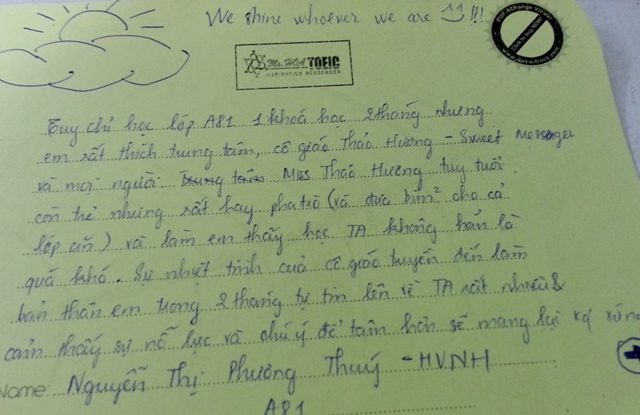 We shine whoever we are !!!
Ms. HOA TOEIC
Tuy chỉ học lớp A81 1 khoá học 2 tháng nhưng
em rất thích trung tâm, cô giáo Thảo Hương - Sweet Messenger
và mọi người. Trung tâm Miss Thảo Hương tuy tuổi
còn trẻ nhưng rất hay pha trò (và đưa bim² cho cả
lớp ăn) và làm em thấy học TA không hẳn là
quá khó. Sự nhiệt tình của cô giáo truyền đến làm
bản thân em trong 2 tháng tự tin lên về TA rất nhiều &
cảm thấy sự nỗ lực và chú ý để tâm hơn sẽ mang lại kq xứng
Name: Nguyễn Thị Phương Thuý - HVNH
A81